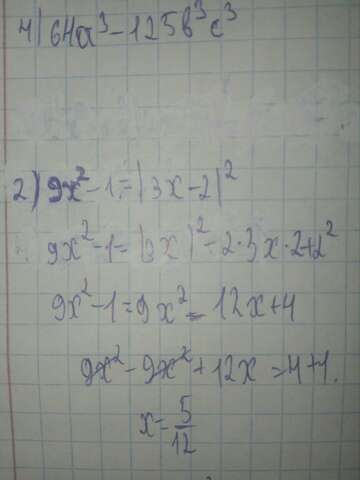 4) 64a³-125b³c³
2) 9x²-1=(3x-2)²
9x²-1=(3x)²-2·3x·2+2²
9x²-1=9x²-12x+4
9x²-9x²+12x=4+1.
x=5/12